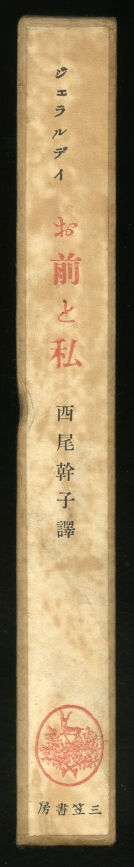 ジェラルディ
お前と私
西尾幹子譯
三笠書房